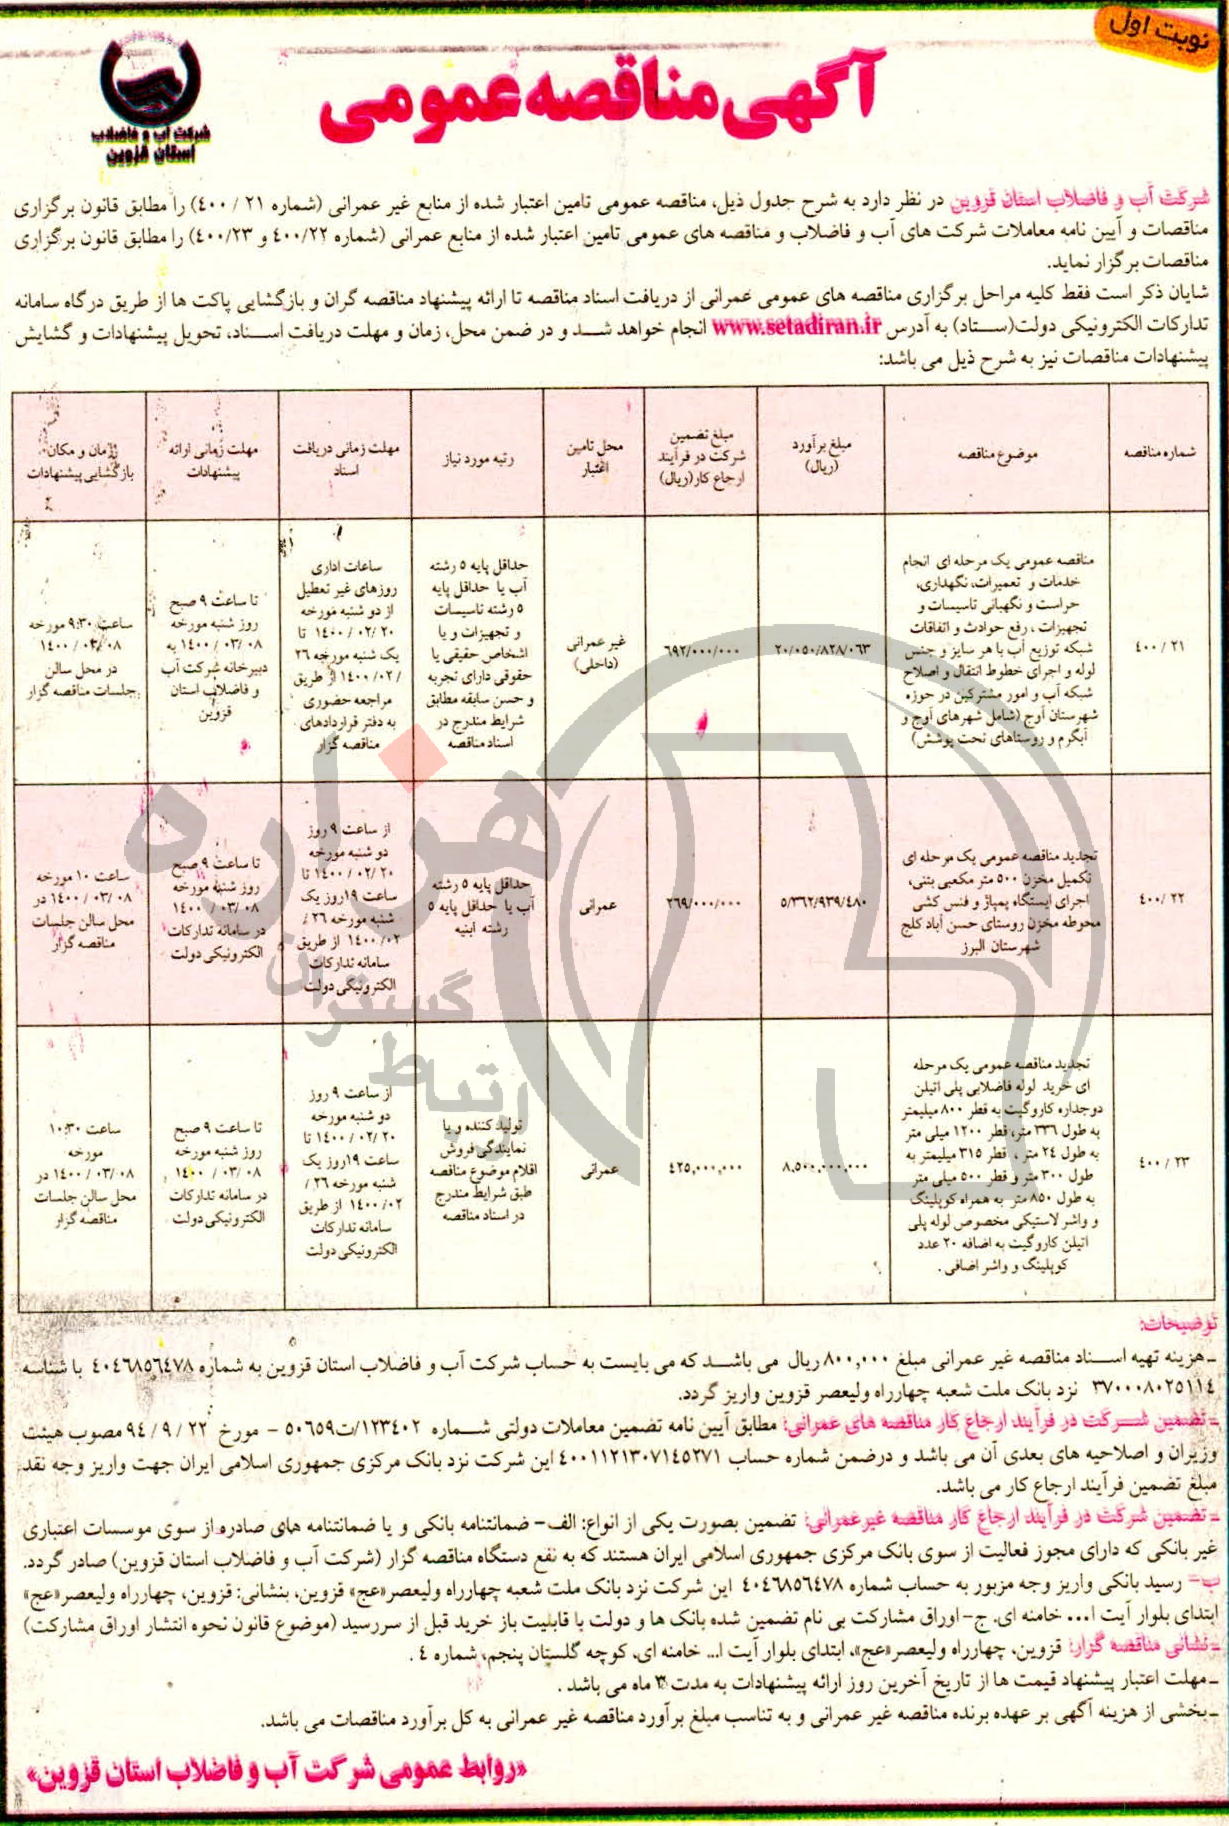 نوبت اول
آگهی مناقصه عمومی
شرکت آب و فاضلاب
استان قزوین
شرکت آب و فاضلاب استان قزوین در نظر دارد به شرح جدول ذیل، مناقصه عمومی تامین اعتبار شده از منابع غیر عمرانی (شماره ۲۱ / ۴۰۰) را مطابق قانون برگزاری
مناقصات و آیین نامه معاملات شرکت های آب و فاضلاب و مناقصه های عمومی تامین اعتبار شده از منابع عمرانی (شماره ۴۰۰/۲۲ و ۴۰۰/۲۳) را مطابق قانون برگزاری
مناقصات برگزار نماید.
شایان ذکر است فقط کلیه مراحل برگزاری مناقصه های عمومی عمرانی از دریافت اسناد مناقصه تا ارائه پیشنهاد مناقصه گران و بازگشایی پاکت ها از طریق درگاه سامانه
تدارکات الکترونیکی دولت(ستاد) به آدرس www.setadiran.ir انجام خواهد شد و در ضمن محل، زمان و مهلت دریافت اسناد، تحویل پیشنهادات و گشایش
پیشنهادات مناقصات نیز به شرح ذیل می باشد:
شماره مناقصه
موضوع مناقصه
مبلغ برآورد
(ریال)
مبلغ تضمین
شرکت در فرآیند
ارجاع کار(ریال)
محل تامین
اعتبار
رتبه مورد نیاز
مهلت زمانی دریافت
اسناد
مهلت زمانی ارائه
پیشنهادات
زمان و مکان
بازگشایی پیشنهادات
۴۰۰ / ۲۱
مناقصه عمومی یک مرحله ای انجام
خدمات و تعمیرات، نگهداری،
حراست و نگهبانی تاسیسات و
تجهیزات ، رفع حوادث و اتفاقات
شبکه توزیع آب با هر سایز و جنس
لوله و اجرای خطوط انتقال و اصلاح
شبکه آب و امور مشترکین در حوزه
شهرستان آوج (شامل شهرهای آوج و
آبگرم و روستاهای تحت پوشش)
۲۰/۰۵۰/۸۲۸/۰۶۳
۶۹۲/۰۰۰/۰۰۰
غیر عمرانی
(داخلی)
حداقل پایه ۵ رشته
آب یا حداقل پایه
۵ رشته تاسیسات
و تجهیزات و یا
اشخاص حقیقی یا
حقوقی دارای تجربه
و حسن سابقه مطابق
شرایط مندرج در
اسناد مناقصه
ساعات اداری
روزهای غیر تعطیل
از دو شنبه مورخه
۲۰ /۰۲ / ۱۴۰۰ تا
یک شنبه مورخه ۲۶
/ ۰۲/ ۱۴۰۰ از طریق
مراجعه حضوری
به دفتر قراردادهای
مناقصه گزار
تا ساعت ۹ صبح
روز شنبه مورخه
۰۸ /۰۳ / ۱۴۰۰ به
دبیرخانه شرکت آب
و فاضلاب استان
قزوین
ساعت ۹:۳۰ مورخه
۰۸ /۰۳ / ۱۴۰۰
در محل سالن
جلسات مناقصه گزار
۴۰۰/ ۲۲
تجدید مناقصه عمومی یک مرحله ای
تکمیل مخزن ۵۰۰ متر مکعبی بتنی،
اجرای ایستگاه پمپاژ و فنس کشی
محوطه مخزن روستای حسن آباد کلج
شهرستان البرز
۵/۳۶۲/۹۳۹/۴۸۰
۲۶۹/۰۰۰/۰۰۰
عمرانی
حداقل پایه ۵ رشته
آب یا حداقل پایه ۵
رشته ابنیه
از ساعت ۹ روز
دو شنبه مورخه
۲۰ /۰۲ / ۱۴۰۰ تا
ساعت ۱۹روز یک
شنبه مورخه ۲۶ /
۰۲/ ۱۴۰۰ از طریق
سامانه تدارکات
الکترونیکی دولت
تا ساعت ۹ صبح
روز شنبه مورخه
۰۸ /۰۳ / ۱۴۰۰
در سامانه تدارکات
الکترونیکی دولت
ساعت ۱۰ مورخه
۰۸ /۰۳ / ۱۴۰۰ در
محل سالن جلسات
مناقصه گزار
۴۰۰ / ۲۳
تجدید مناقصه عمومی یک مرحله
ای خرید لوله فاضلابی پلی اتیلن
دوجداره کاروگیت به قطر ۸۰۰ میلیمتر
به طول ۳۳۶ متر، قطر ۱۲۰۰ میلی متر
به طول ۲۴ متر ، قطر ۳۱۵ میلیمتر به
طول ۳۰۰ متر و قطر ۵۰۰ میلی متر
به طول ۸۵۰ متر به همراه کوپلینگ
و واشر لاستیکی مخصوص لوله پلی
اتیلن کاروگیت به اضافه ۲۰ عدد
کوپلینگ و واشر اضافی .
۸,۵۰۰,۰۰۰,۰۰۰
۴۲۵,۰۰۰,۰۰۰
عمرانی
تولید کننده و یا
نمایندگی فروش
اقلام موضوع مناقصه
طبق شرایط مندرج
در اسناد مناقصه
از ساعت ۹ روز
دو شنبه مورخه
۲۰ /۰۲ / ۱۴۰۰ تا
ساعت ۱۹روز یک
شنبه مورخه ۲۶ /
۰۲/ ۱۴۰۰ از طریق
سامانه تدارکات
الکترونیکی دولت
تا ساعت ۹ صبح
روز شنبه مورخه
۰۸ /۰۳ / ۱۴۰۰
در سامانه تدارکات
الکترونیکی دولت
ساعت ۱۰:۳۰
مورخه
۰۸ /۰۳ / ۱۴۰۰ در
محل سالن جلسات
مناقصه گزار
هزاره
گستران
ارتباط
توضیحات:
ـ هزینه تهیه اسناد مناقصه غیر عمرانی مبلغ ۸۰۰,۰۰۰ ریال می باشد که می بایست به حساب شرکت آب و فاضلاب استان قزوین به شماره ۴۰۴۶۸۵۶۴۷۸ با شناسه
۳۷۰۰۰۸۰۲۵۱۱۴ نزد بانک ملت شعبه چهارراه ولیعصر قزوین واریز گردد.
ـ تضمین شرکت در فرآیند ارجاع کار مناقصه های عمرانی: مطابق آیین نامه تضمین معاملات دولتی شماره ۱۲۳۴۰۲/ت۵۰۶۵۹ - مورخ ۲۲ / ۹ / ۹۴ مصوب هیئت
وزیران و اصلاحیه های بعدی آن می باشد و درضمن شماره حساب ۴۰۰۱۱۲۱۳۰۷۱۴۵۲۷۱ این شرکت نزد بانک مرکزی جمهوری اسلامی ایران جهت واریز وجه نقد
مبلغ تضمین فرآیند ارجاع کار می باشد.
ـ تضمین شرکت در فرآیند ارجاع کار مناقصه غیرعمرانی: تضمین بصورت یکی از انواع: الف- ضمانتنامه بانکی و یا ضمانتنامه های صادره از سوی موسسات اعتباری
غیر بانکی که دارای مجوز فعالیت از سوی بانک مرکزی جمهوری اسلامی ایران هستند که به نفع دستگاه مناقصه گزار (شرکت آب و فاضلاب استان قزوین) صادر گردد.
ب- رسید بانکی واریز وجه مزبور به حساب شماره ۴۰۴۶۸۵۶۴۷۸ این شرکت نزد بانک ملت شعبه چهارراه ولیعصر«عج» قزوین، بنشانی: قزوین، چهارراه ولیعصر«عج»
ابتدای بلوار آیت ا... خامنه ای. ج- اوراق مشارکت بی نام تضمین شده بانک ها و دولت با قابلیت باز خرید قبل از سررسید (موضوع قانون نحوه انتشار اوراق مشارکت)
ـ نشانی مناقصه گزار: قزوین، چهارراه ولیعصر«عج»، ابتدای بلوار آیت ا... خامنه ای، کوچه گلستان پنجم، شماره ۴ .
ـ مهلت اعتبار پیشنهاد قیمت ها از تاریخ آخرین روز ارائه پیشنهادات به مدت ۳ ماه می باشد .
ـ بخشی از هزینه آگهی بر عهده برنده مناقصه غیر عمرانی و به تناسب مبلغ برآورد مناقصه غیر عمرانی به کل برآورد مناقصات می باشد.
«روابط عمومی شرکت آب و فاضلاب استان قزوین»